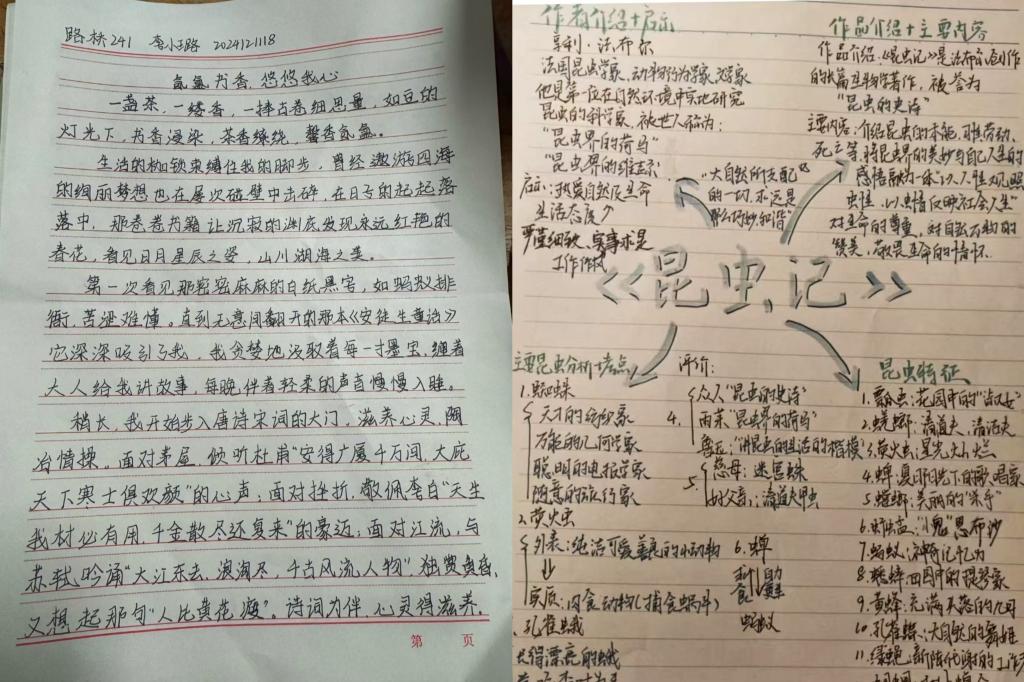 路桥241 李小璐 2024121118
氤氲书香,悠悠我心
一盏茶,一缕香,一捧古卷细思量,如豆的
灯光下,书香浸染,茶香缭绕,馨香氤氲。
生活的枷锁束缚住我的脚步,曾经遨游四海
的绚丽梦想也在屡次碰壁中击碎,在日亏的起起落
落中,那卷卷书籍让沉寂的渊底发现永远红艳的
春花,看见日月星辰之姿,山川湖海之美。
第一次看见那密密麻麻的白纸黑字,如蚂蚁排
衙,苦涩难懂。直到无意间翻开的那本《安徒生童话》
它深深吸引了我,我贪婪地汲取着每一寸墨宝,缠着
大人给我讲故事,每晚伴着轻柔的声音慢慢入睡。
稍长,我开始步入唐诗宋词的大门,滋养心灵,陶
冶情操。面对茅屋,倾听杜甫“安得广厦千万间,大庇
天下寒士俱欢颜”的心声;面对挫折,敬佩李白“天生
我材必有用,千金散尽还复来”的豪迈;面对江流,与
苏轼吟诵“大江东去,浪淘尽,千古风流人物”,独赏黄昏,
又想起那句“人比黄花瘦”。诗词为伴,心灵得滋养。
第 页
作者介绍+启示
亨利·法布尔
法国昆虫学家、动物行为学家、文学家
他是第一位在自然环境中实地研究
昆虫的科学家,被世人称为:
“昆虫界的荷马”
“昆虫界的维吉尔”
启示:热爱自然及生命
生活态度
严谨细致、实事求是
工作作风
“大自然的支配
的一切,永远是
那么巧妙和谐”
作品介绍+主要内容
作品介绍:《昆虫记》是法布尔创作
的长篇生物学著作,被誉为
“昆虫的史诗”
主要内容:介绍昆虫的本能、习性、劳动、
死亡等,将昆虫界的美妙与自己人生的
感悟融为一体,以人性观照
虫性,以虫情反映社会人生
对生命的尊重,对自然万物的
赞美,敬畏生命的情怀
《昆虫记》
主要昆虫分析+考点
1.蜘蛛
天才的纺织家
万能的几何学家
聪明的电报学家
随意的旅行家
2.萤火虫
外表:纯洁可爱善良的小动物
实质:肉食动物(捕食蜗牛)
孔雀蛾
长得漂亮的蛾
评价:
4.
众人“昆虫的史诗”
雨果“昆虫界的荷马”
鲁迅:“讲昆虫的生活的楷模”
5.
慈母:迷宫蛛
好父亲:清道夫甲虫
6.蝉
蚂蚁
昆虫特征
1.瓢虫:花园中的“淑女”
2.蜣螂:清道夫、清洁夫
3.萤火虫:星光灿烂
4.蝉:夏阳光下的歌唱家
5.螳螂:美丽的“杀手”
6.蟋蟀:“小鬼”恩布沙
7.蚂蚁:神奇记忆力
8.蟋蟀:田园中的提琴家
9.黄蜂:充满天慈的几何
10.孔雀蝶:大自然的舞姬
11.绿蝇:新陈代谢的工作